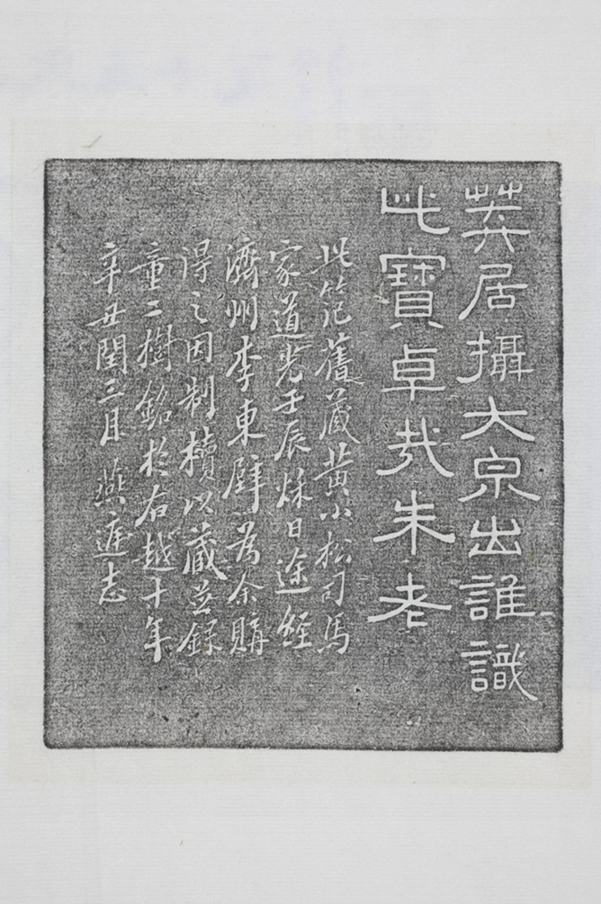 莽居攝大泉出誰識
此寶卓哉朱老
此笵舊藏黃小松司馬
家道光壬辰秌日途經
濟州李東壁為余購
得之因制櫝以藏並錄
童二樹銘於右越十年
辛丑閏三月燕庭志